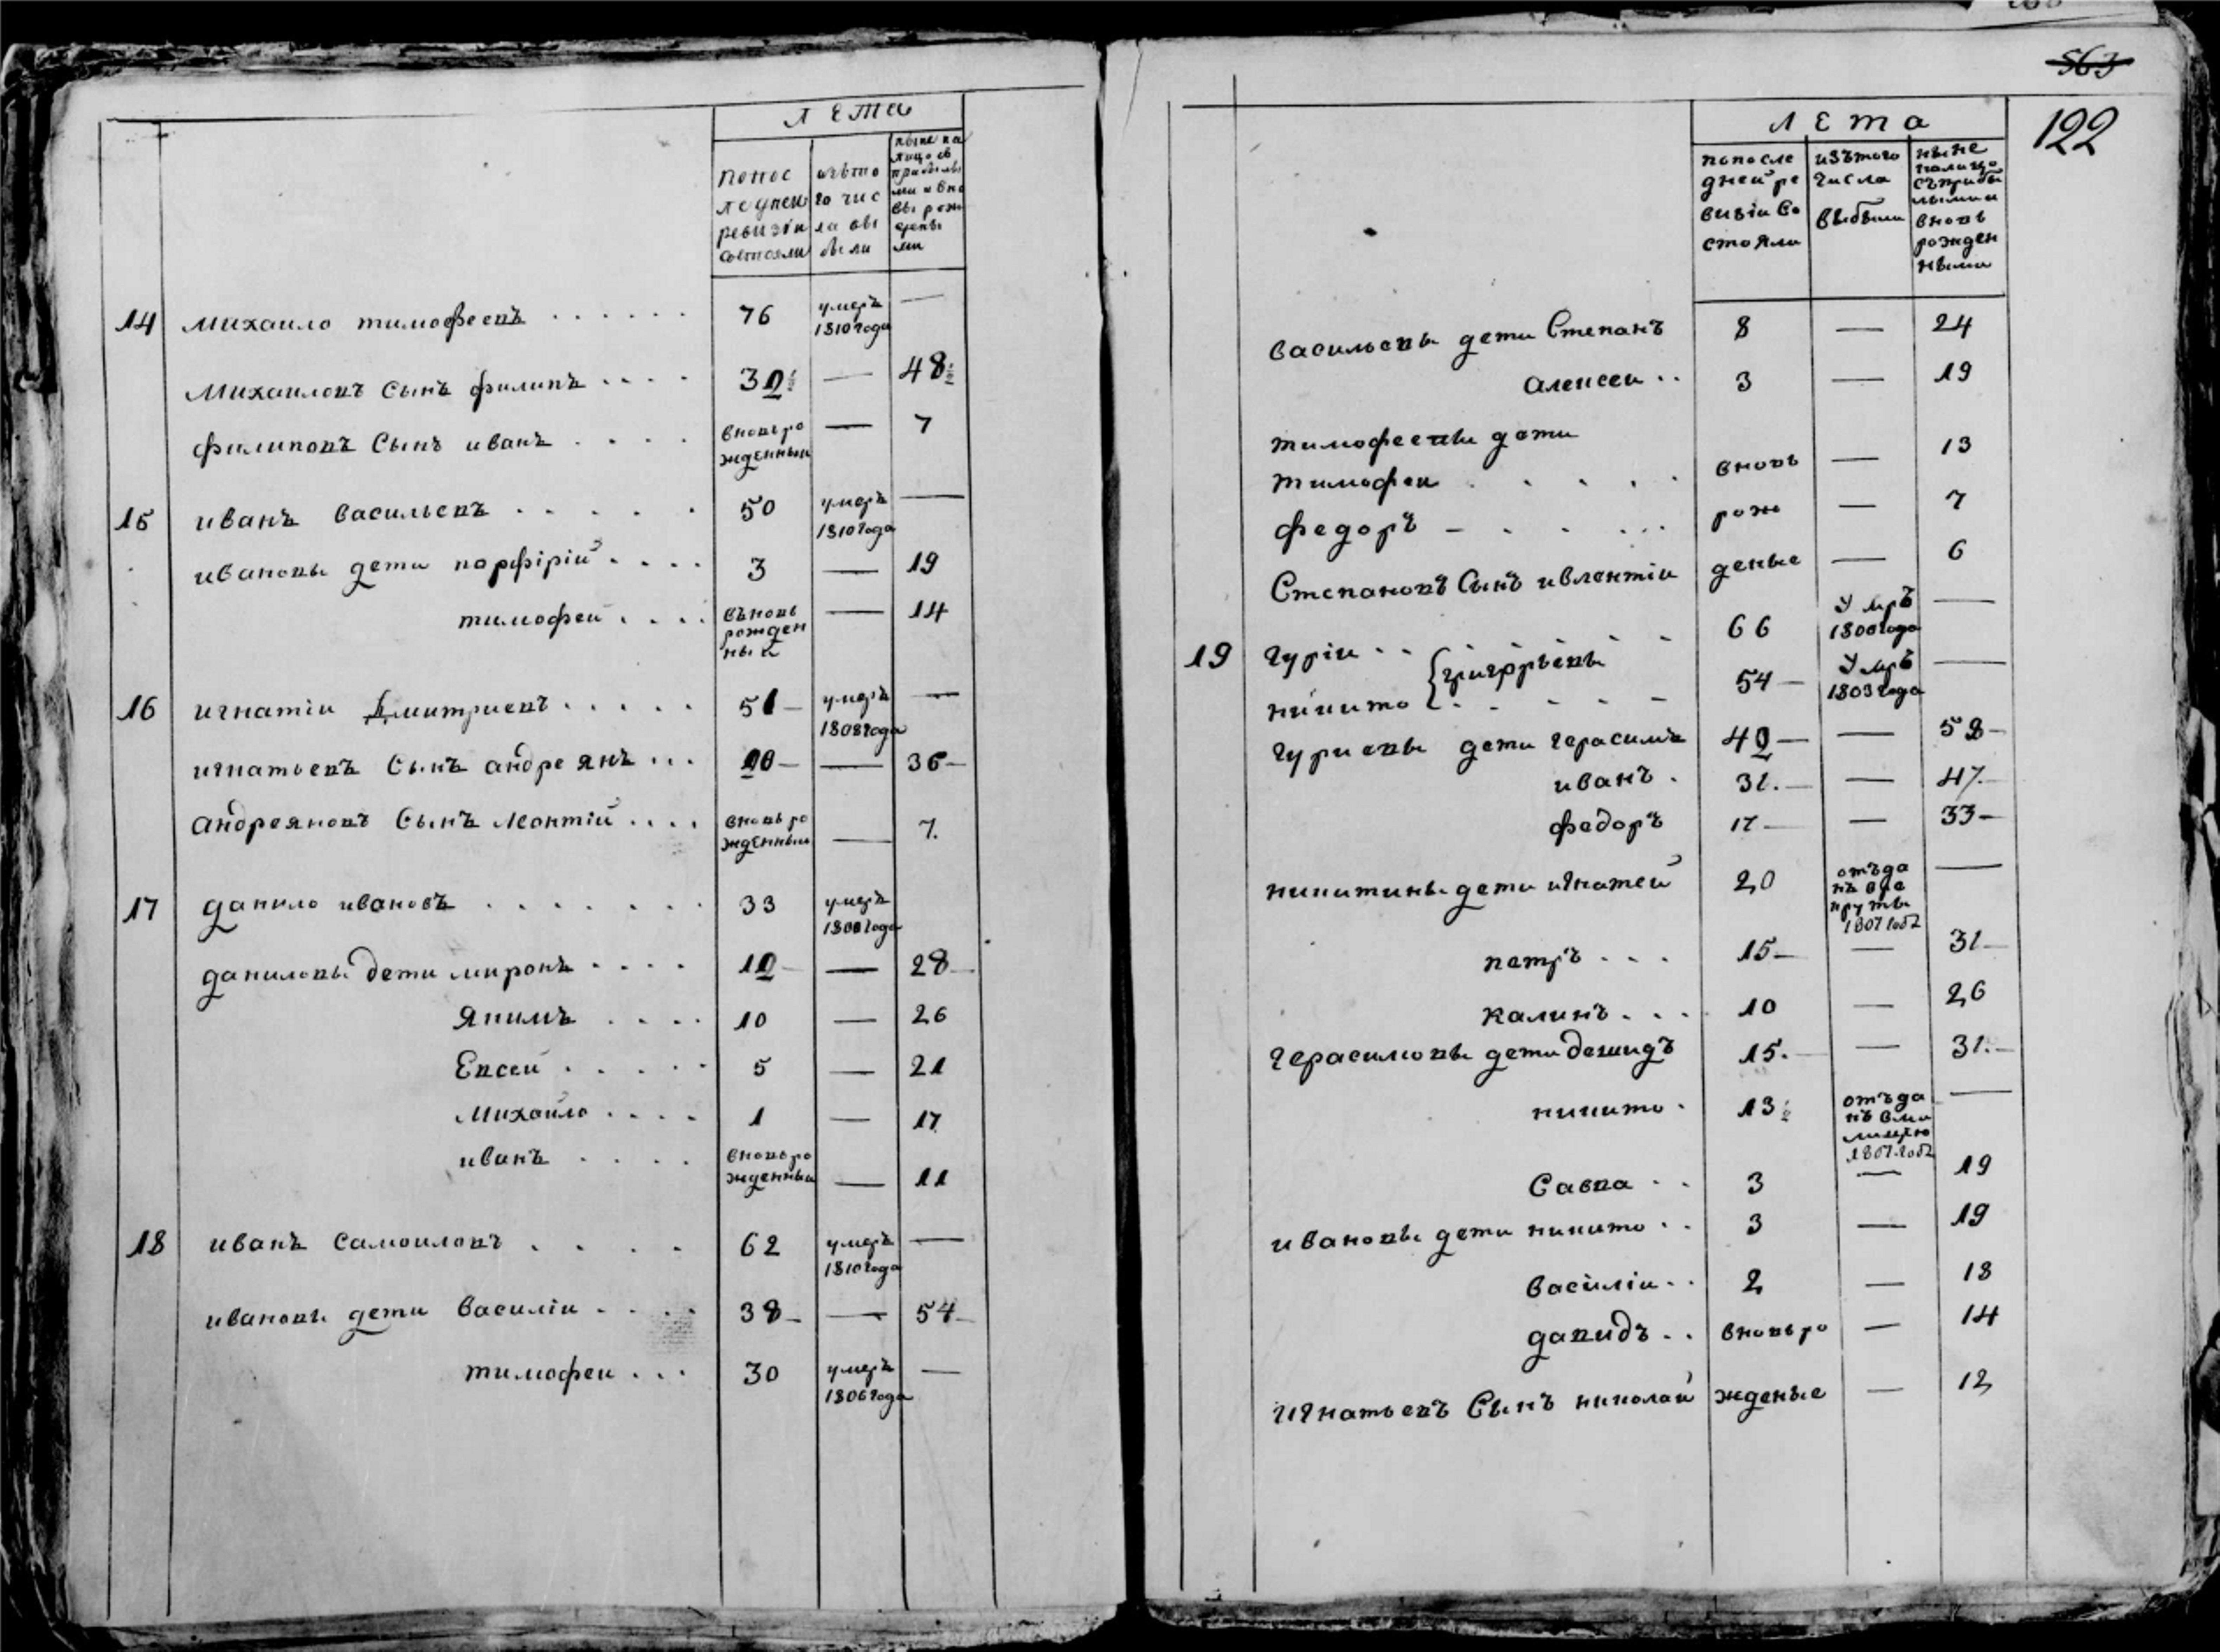 лета
попос
ледней
ревизiи
состояли
изъто
го чис
ла вы
были
ныне на
лицо съ
прибылы
ми и вно
вь рож
денны
ми
14 михаило тимофеевъ . . . . . . 76 умеръ 1810 года —
михаиловъ сынъ филипъ . . . . 32 1/2 — 48 1/2
филиповъ сынъ иванъ . . . . вновь ро — 7
жденныи
15 иванъ васильевъ . . . . . 50 умеръ 1810 года —
ивановы дети порфiрiй . . . . 3 — 19
тимофеи . . . . въновь — 14
рожден
ный
16 игнатiи дмитриевъ . . . . . 51 — умеръ 1808 года —
игнатьевъ сынъ андреянъ . . . 20 — — 36 —
андреяновъ сынъ леонтiй . . . . вновь ро — 7.
жденныи
17 данило ивановъ . . . . . . . 33 умеръ 1800 года
даниловы дети миронъ . . . . 12 — — 28 —
якимъ . . . . 10 — 26
Евсеи . . . . . 5 — 21
михайло . . . . 1 — 17
иванъ . . . . вновь ро — 11
жденныи
18 иванъ самоиловъ . . . . 62 умеръ 1810 года —
ивановы дети василiи . . . . 38 — — 54 —
тимофеи . . . 30 умеръ 1806 года —
563
122
лета
попосле
дней ре
визiи со
стояли
изътого
числа
выбыли
ныне
налицо
съприбы
лыми и
вновь
рожден
ными
васильевы дети Степанъ 8 — 24
алексеи . . 3 — 19
тимофеевы дети
тимофеи . . . . . вновь — 13
федоръ — . . . . . рож — 7
Степановъ Сынъ ивлентiи деные — 6
19 гурiи . . григорьевы 66 Умръ 1800 года —
никито . . . . . 54 — Умръ 1803 года —
гуриевы дети герасимъ 42 — — 58 —
иванъ . 31. — — 47. —
федоръ 17 — — 33 —
никитины дети игнатей 20 отъда —
нъ в ре
круты
1807 годъ
петръ . . . 15 — — 31 —
калинъ . . . 10 — 26
герасимовы дети демидъ 15. — — 31. —
никито . 13 1/2 отъда —
нъ в ми
лицiю
1807 годъ
Савва . . 3 — 19
ивановы дети никито . . 3 — 19
василiи . . 2 — 18
давидъ . . вновь ро — 14
игнатьевъ Сынъ николаи жденые — 12